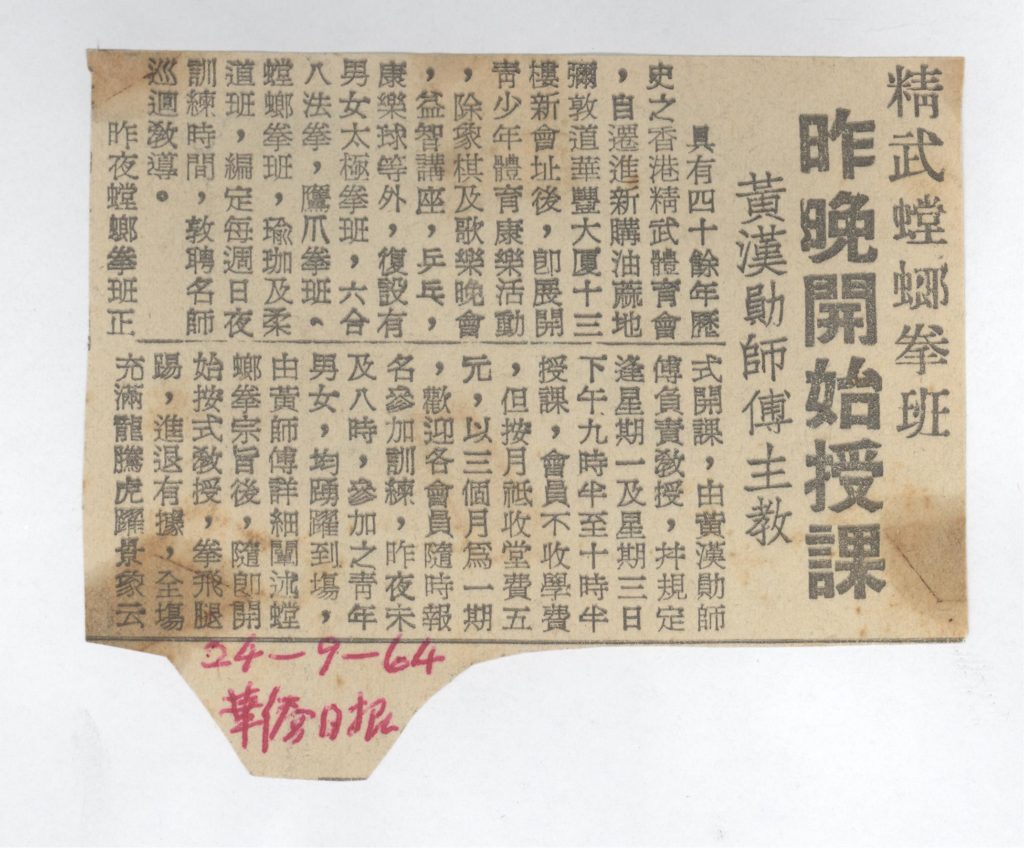 精武螳螂拳班
昨晚開始授課
黃漢勛師傅主教
具有四十餘年歷
史之香港精武體育會
，自遷進新購油蔴地
彌敦道華豐大厦十三
樓新會址後，卽展開
靑少年體育康樂活動
，除象棋及歌樂晚會
，益智講座，乒乓，
康樂球等外，復設有
男女太極拳班，六合
八法拳，鷹爪拳班。
螳螂拳班，瑜珈及柔
道班，編定每週日夜
訓練時間，敦聘名師
巡迴敎導。
昨夜螳螂拳班正
式開課，由黃漢勛師
傅負責敎授，幷規定
逢星期一及星期三日
下午九時半至十時半
授課，會員不收學費
，但按月祗收堂費五
元，以三個月爲一期
，歡迎各會員隨時報
名參加訓練，昨夜未
及八時，參加之靑年
男女，均踴躍到塲，
由黃師傅詳細闡述螳
螂拳宗旨後，隨卽開
始按式敎授，拳飛腿
踢，進退有據，全塲
充滿龍騰虎躍景象云
24-9-64
華僑日报